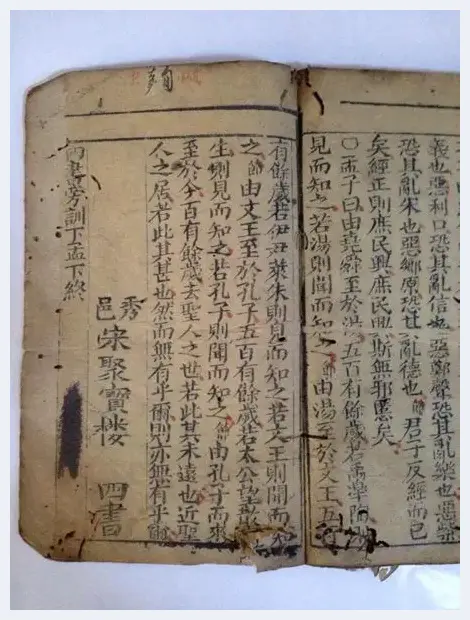 義也惡利口恐其亂信也惡鄭聲恐其亂樂也惡紫
恐其亂朱也惡鄉原恐其亂德也節君子反經而已
矣經正則庶民興庶民興斯無邪慝矣
〇孟子曰由堯舜至於湯五百有餘歲若禹皋陶
見而知之若湯則聞而知之節由湯至於文王五
有餘歲若伊尹萊朱則見而知之若文王則聞而知
之節由文王至於孔子五百有餘歲若太公望散
生則見而知之若孔子則聞而知之節由孔子而來
至於今百有餘歲去聖人之世若此其未遠也近聖
人之居若此其甚也然而無有乎爾則亦無有乎爾
秀邑宋聚寶樓 四書
四書旁訓下孟下終